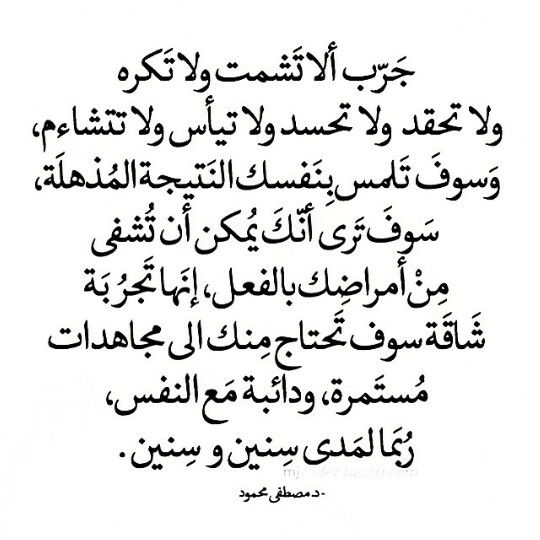 جَرّب ألا تَشمت ولا تَكره
ولا تحقد ولا تحسد ولا تيأس ولا تتشاءم،
وَسوفَ تَلمس بِنَفسك النَتيجة المُذهلَة،
سَوفَ تَرى أنّكَ يُمكن أن تُشفى
مِنْ أمراضِك بالفعل، إنَها تَجرُبَة
شَاقَة سوف تَحتاج مِنك الى مجاهدات
مُستَمرة، ودائبة مَع النفس،
رُبَما لمَدى سِنين و سِنين .
-د.مصطفى محمود